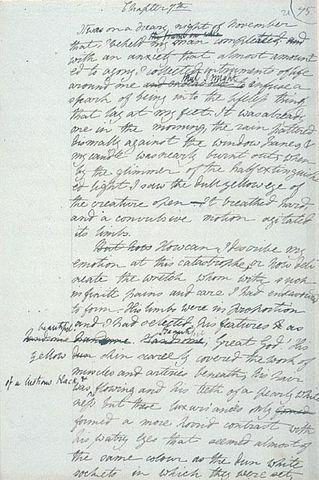 Chapter 7th
It was on a dreary night of November
the frame on whic
that I beheld my man completed and
with an anxiety that almost amount
ed to agony, I collected instruments of life
that I might
around me and endeavour to infuse a
spark of being into the lifeless thing
that lay at my feet. It was already
one in the morning, the rain pattered
dismally against the window panes, &
my candle was nearly burnt out, when
by the glimmer of the half extinguish
ed light I saw the dull yellow eye of
the creature open—It breathed hard
and a convulsive motion agitated
its limbs.
But how How can I describe my
emotion at this catastrophe, or how deli
neate the wretch whom with such
infinite pains and care I had endeavoured
to form. His limbs were in proportion
and I had selected his features as
beautiful
handsome. Handsome, Great God! His
yellow dun skin scarcely covered the work of
muscles and arteries beneath; his hair
of a lustrous black, &
was flowing and his teeth of a pearly white
ness but these luxuriances only formed
formed a more horrid contrast with
his watry eyes that seemed almost of
the same colour as the dun white
sockets in which they were set,